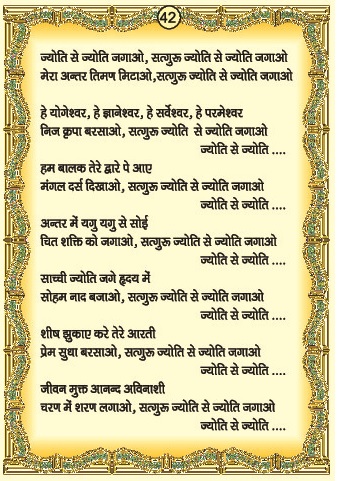 42
ज्योति से ज्योति जगाओ, सत्गुरू ज्योति से ज्योति जगाओ
मेरा अन्तर तिमण मिटाओ,सत्गुरू ज्योति से ज्योति जगाओ
हे योगेश्वर, हे ज्ञानेश्वर, हे सर्वेश्वर, हे परमेश्वर
निज कृपा बरसाओ, सत्गुरू ज्योति से ज्योति जगाओ
ज्योति से ज्योति ....
हम बालक तेरे द्वारे पे आए
मंगल दर्स दिखाओ, सत्गुरू ज्योति से ज्योति जगाओ
ज्योति से ज्योति ....
अन्तर में यगु यगु से सोई
चित शक्ति को जगाओ, सत्गुरू ज्योति से ज्योति जगाओ
ज्योति से ज्योति ....
साच्ची ज्योति जगे हृदय में
सोहम नाद बजाओ, सत्गुरू ज्योति से ज्योति जगाओ
ज्योति से ज्योति ....
शीष झुकाए करे तेरे आरती
प्रेम सुधा बरसाओ, सत्गुरू ज्योति से ज्योति जगाओ
ज्योति से ज्योति ....
जीवन मुक्त आनन्द अविनाशी
चरण में शरण लगाओ, सत्गुरू ज्योति से ज्योति जगाओ
ज्योति से ज्योति ....